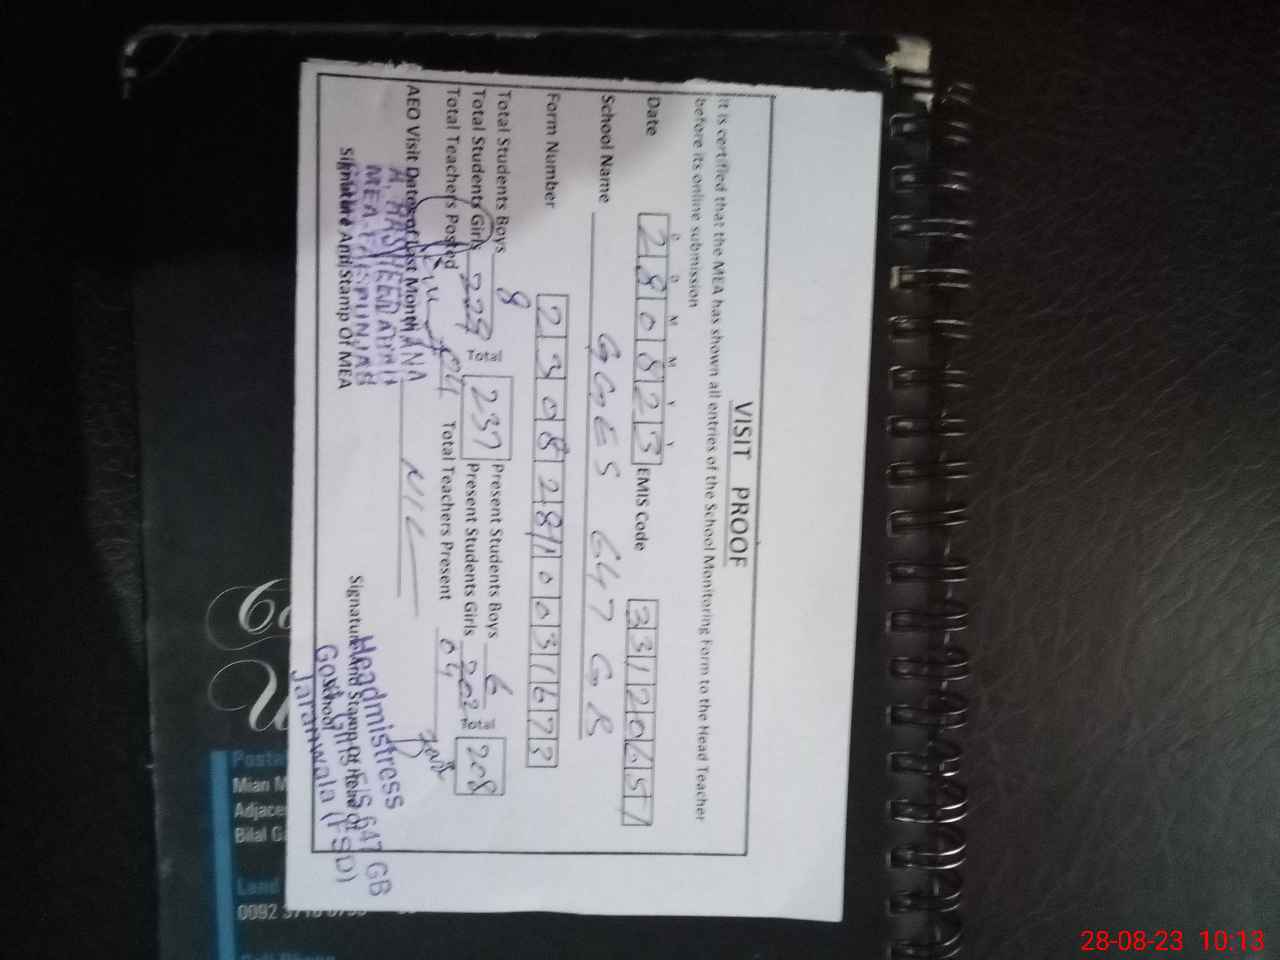 VISIT PROOF
It is certified that the MEA has shown all entries of the School Monitoring Form to the Head Teacher
before its online submission
D D M M Y Y
Date 280823 EMIS Code 33120657
School Name GGES 647 GB
Form Number 23082810031673
Total Students Boys 8 Total 237 Present Students Boys 6 Total 208
Total Students Girls 229 Present Students Girls 202
Total Teachers Posted 04 Total Teachers Present 04
AEO Visit Date of Last Month NIL
Signature And Stamp Of MEA
Signature And Stamp Of Head Of
School
Headmistress
647 GB
Jaranwala (FSD)
Mian M
Adjace
Bilal G
Land
0092
28-08-23 10:13